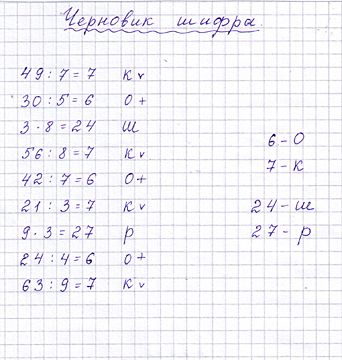 Черновик шифра.
49 : 7 = 7 к v
30 : 5 = 6 о +
3 · 8 = 24 ш
56 : 8 = 7 к v
42 : 7 = 6 о +
21 : 3 = 7 к v
9 · 3 = 27 р
24 : 4 = 6 о +
63 : 9 = 7 к v
6 - О
7 - к
24 - ш
27 - р